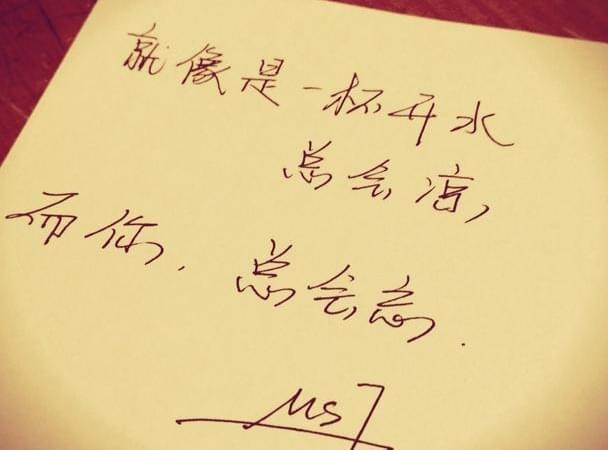 就像是一杯开水
总会凉,
而你,总会忘.
MsJ